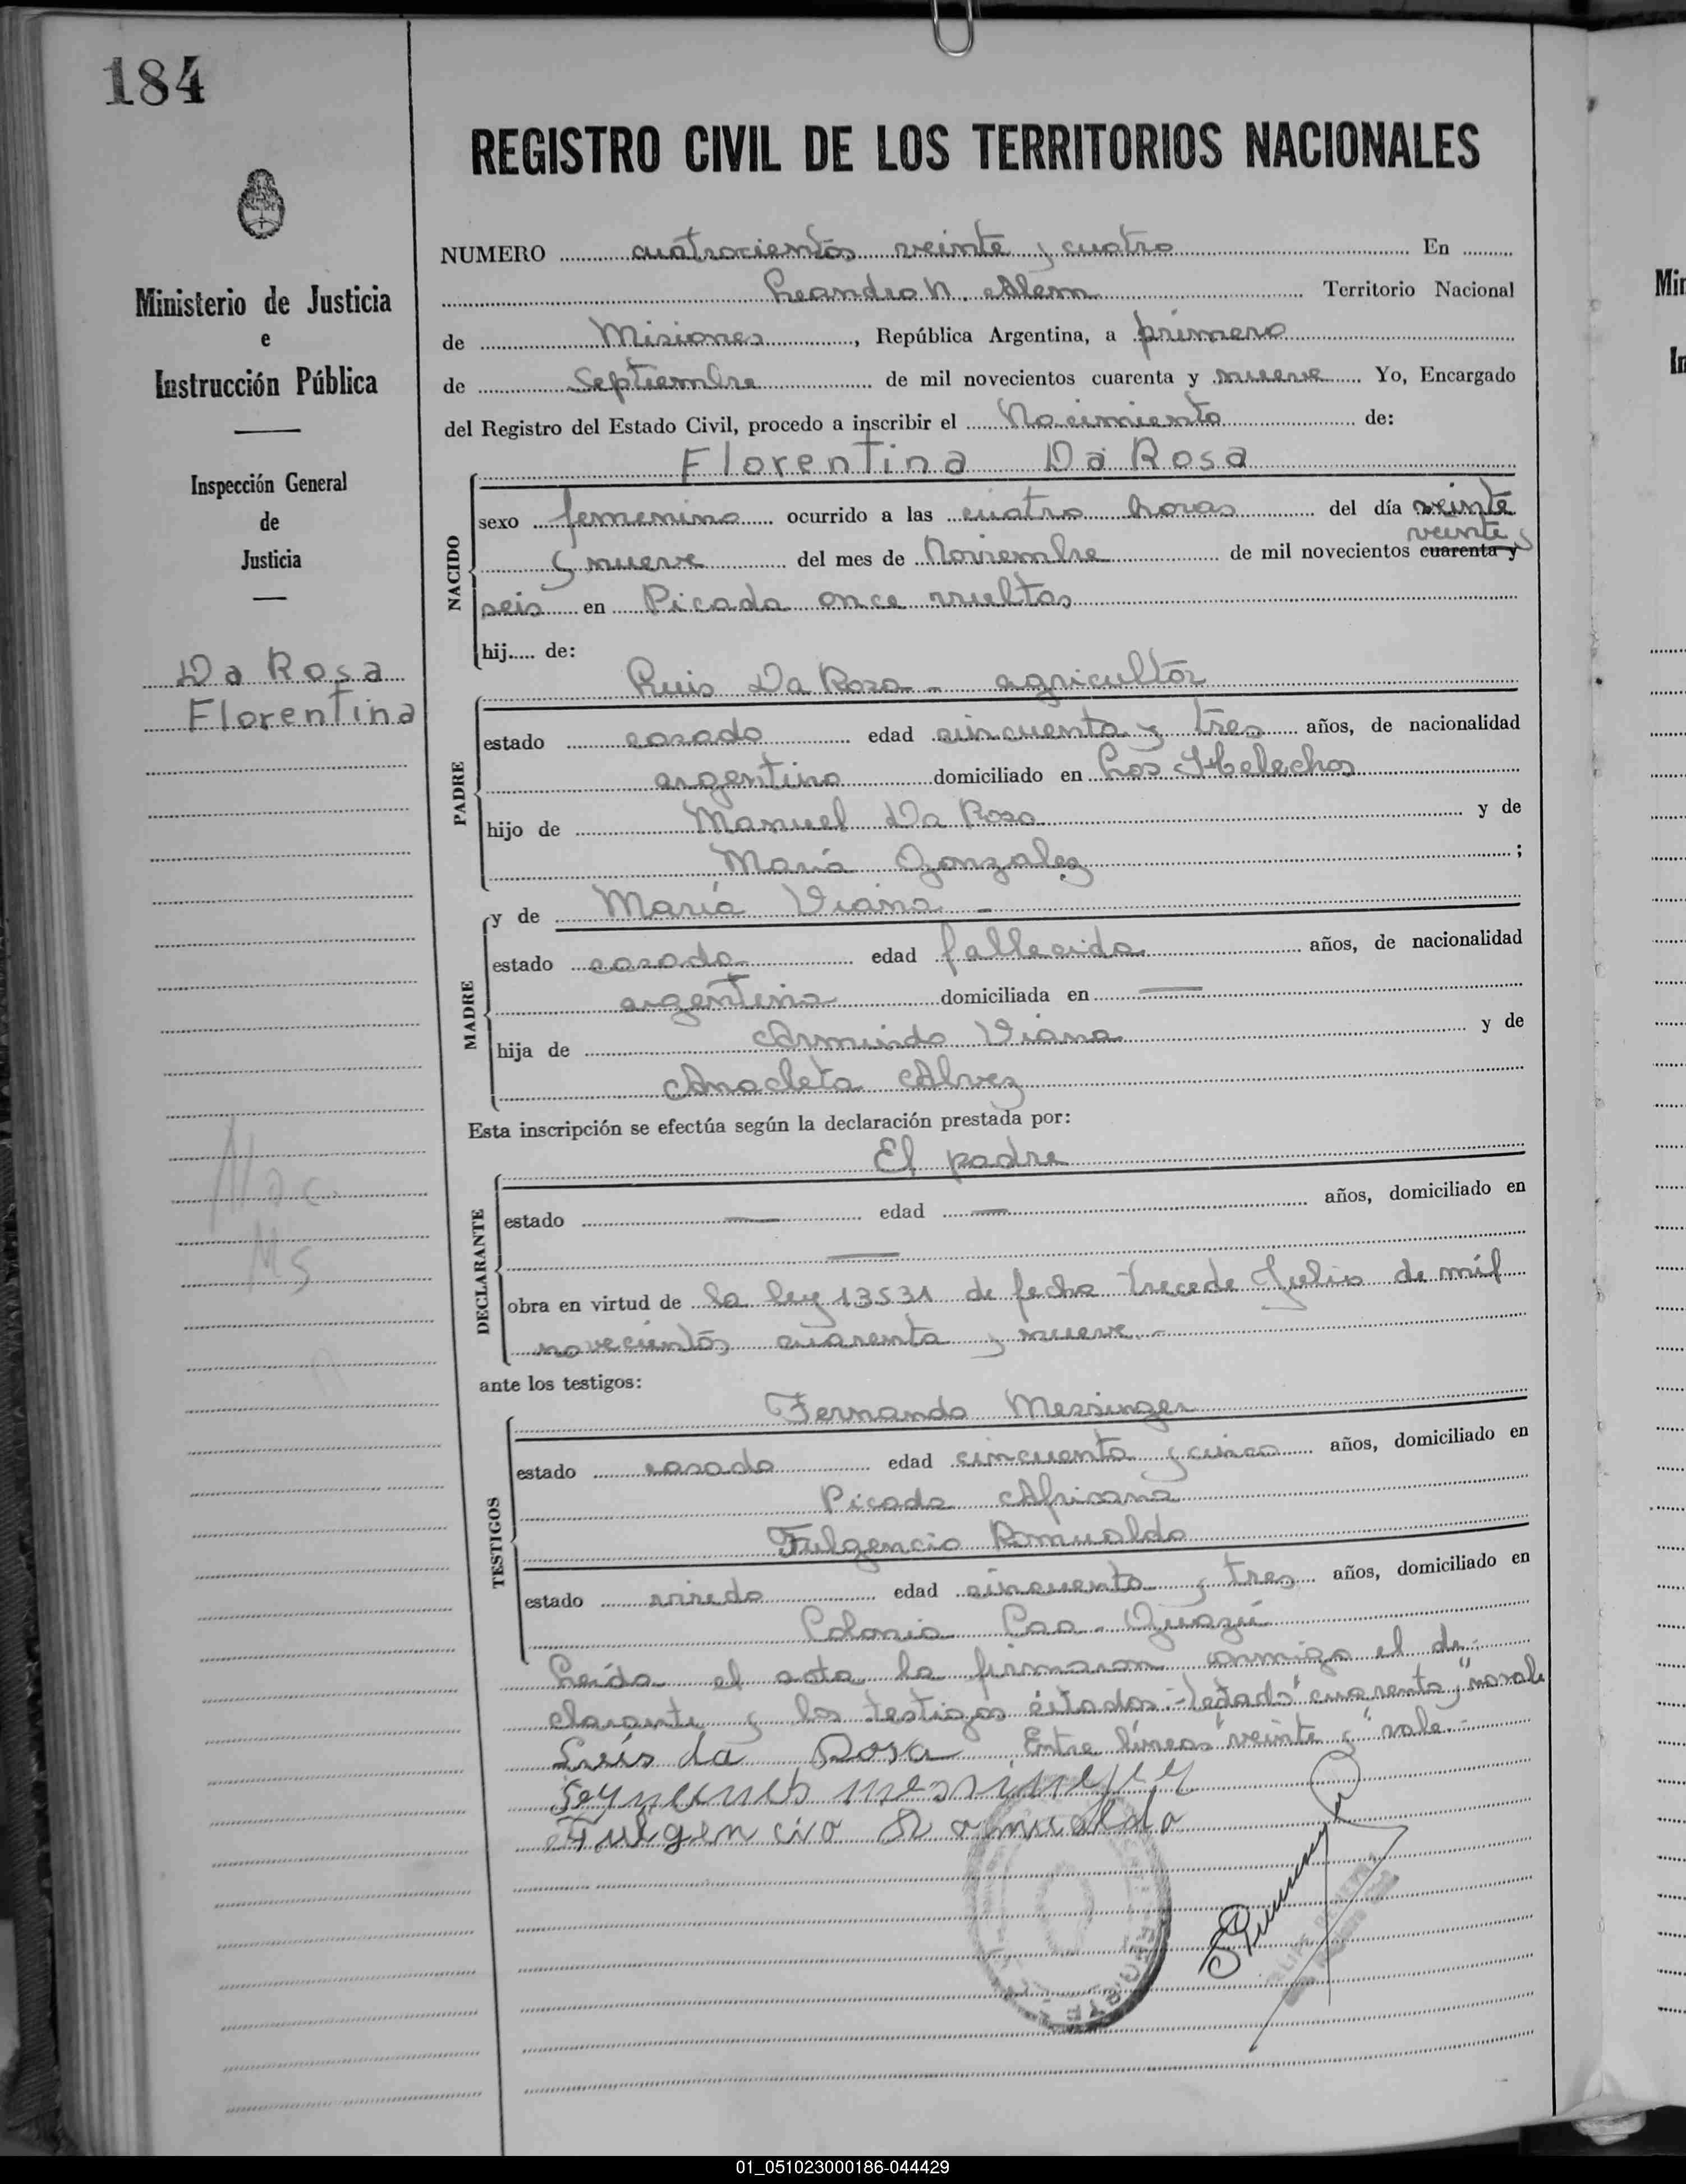 184
REGISTRO CIVIL DE LOS TERRITORIOS NACIONALES
Ministerio de Justicia
e
Instrucción Pública
Inspección General
de
Justicia
Da Rosa
Florentina
NUMERO cuatrocientos veinte y cuatro En
Leandro N. Alem Territorio Nacional
de Misiones, República Argentina, a primero
de Septiembre de mil novecientos cuarenta y nueve Yo, Encargado
del Registro del Estado Civil, procedo a inscribir el Nacimiento de:
Florentina Da Rosa
NACIDO
sexo femenino ocurrido a las cuatro horas del día veinte
veinte y
y nueve del mes de Noviembre de mil novecientos cuarenta y
seis en Picada once vueltas
hij..... de:
Luis Da Rosa - agricultor
PADRE
estado casado edad cincuenta y tres años, de nacionalidad
argentino domiciliado en Los Helechos
hijo de Manuel Da Rosa y de
María Gonzalez ;
y de María Viana -
MADRE
estado casada edad fallecida años, de nacionalidad
argentina domiciliada en —
hija de Armindo Viana y de
Anacleta Alvez
Esta inscripción se efectúa según la declaración prestada por:
El padre
DECLARANTE
estado — edad — años, domiciliado en
—
obra en virtud de la ley 13531 de fecha trece de Julio de mil
novecientos cuarenta y nueve.-
ante los testigos:
Fernando Messinger
TESTIGOS
estado casado edad cincuenta y cinco años, domiciliado en
Picada Africana
Fulgencio Romualdo
estado viudo edad cincuenta y tres años, domiciliado en
Colonia Caa-Guazú
Leída el acta la firmaron conmigo el de-
clarante y los testigos citados.- Testado "cuarenta y" no vale
Luís da Rosa Entre líneas "veinte y" vale.-
messinger
Fulgencio Romualdo
Nac.
Ms
01_051023000186-044429